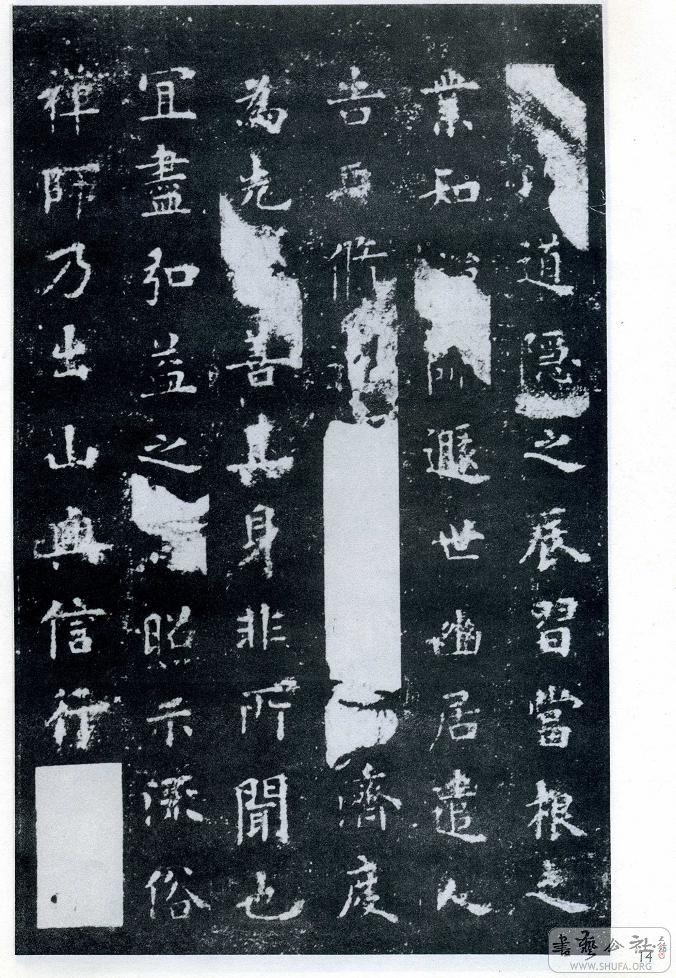 道隱之辰習當根之
業知遯世幽居遣人
告曰修濟度
為先善其身非所聞也
宜盡弘益之照示流俗
禪師乃出山與信行
14
書藝公社
WWW.SHUFA.ORG